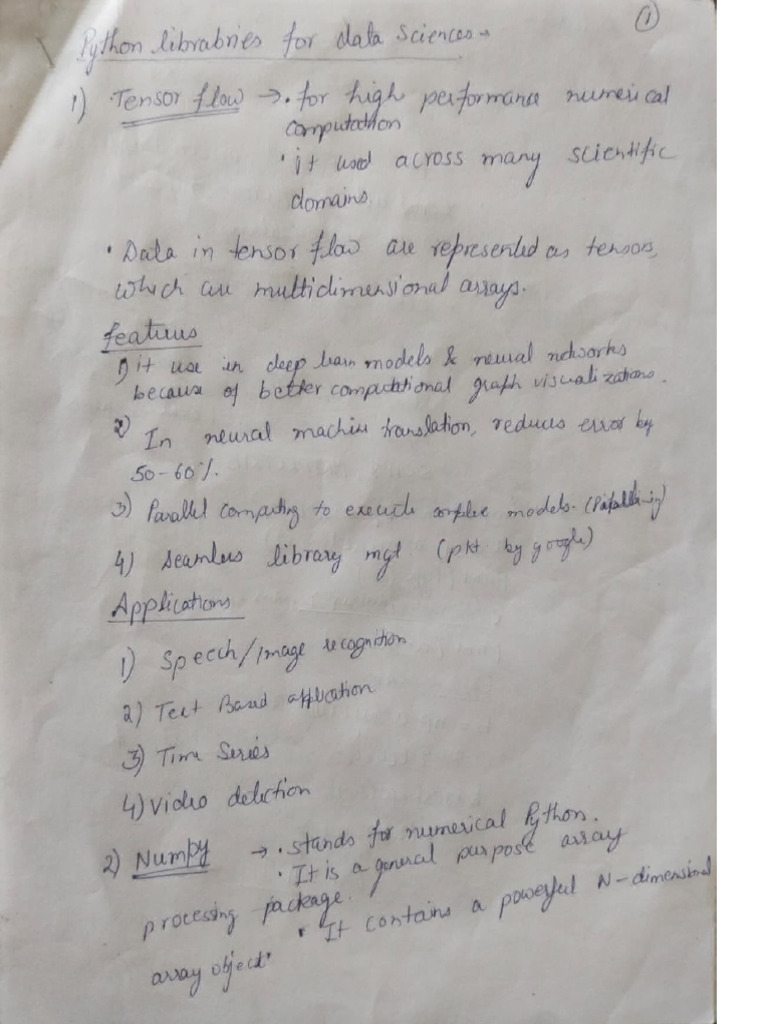 1
Python librabries for data sciences →
1) Tensor flow → • for high performance numerical
computation
• it used across many scientific
domains.
• Data in tensor flow are represented as tensors,
which are multidimensional arrays.
features
1) it use in deep learn models & neural networks
because of better computational graph visualizations.
2) In neural machine translation, reduces error by
50-60%.
3) Parallel computing to execute complex models.
4) Seamless library mgt (pkt by google)
Applications
1) Speech/Image recognition
2) Text Based application
3) Time Series
4) Video detection
2) Numpy → • stands for numerical Python.
• It is a general purpose array
processing package.
• It contains a powerful N-dimensional
array object.